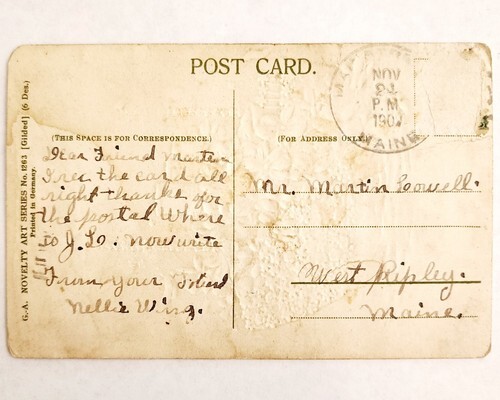 POST CARD.
NOV
P.M
190
MAINE
(THIS SPACE IS FOR CORRESPONDENCE.)
(FOR ADDRESS ONLY
Dear Friend Martin
I rec the card all
right thanks for
the postal Where
is J. L. now write
From Your Friend
Nellie Wing.
Mr. Martin Lowell.
West Ripley.
Maine.
G.-A. NOVELTY ART SERIES No. 1263 [Gilded] (6 Des.)
Printed in Germany.